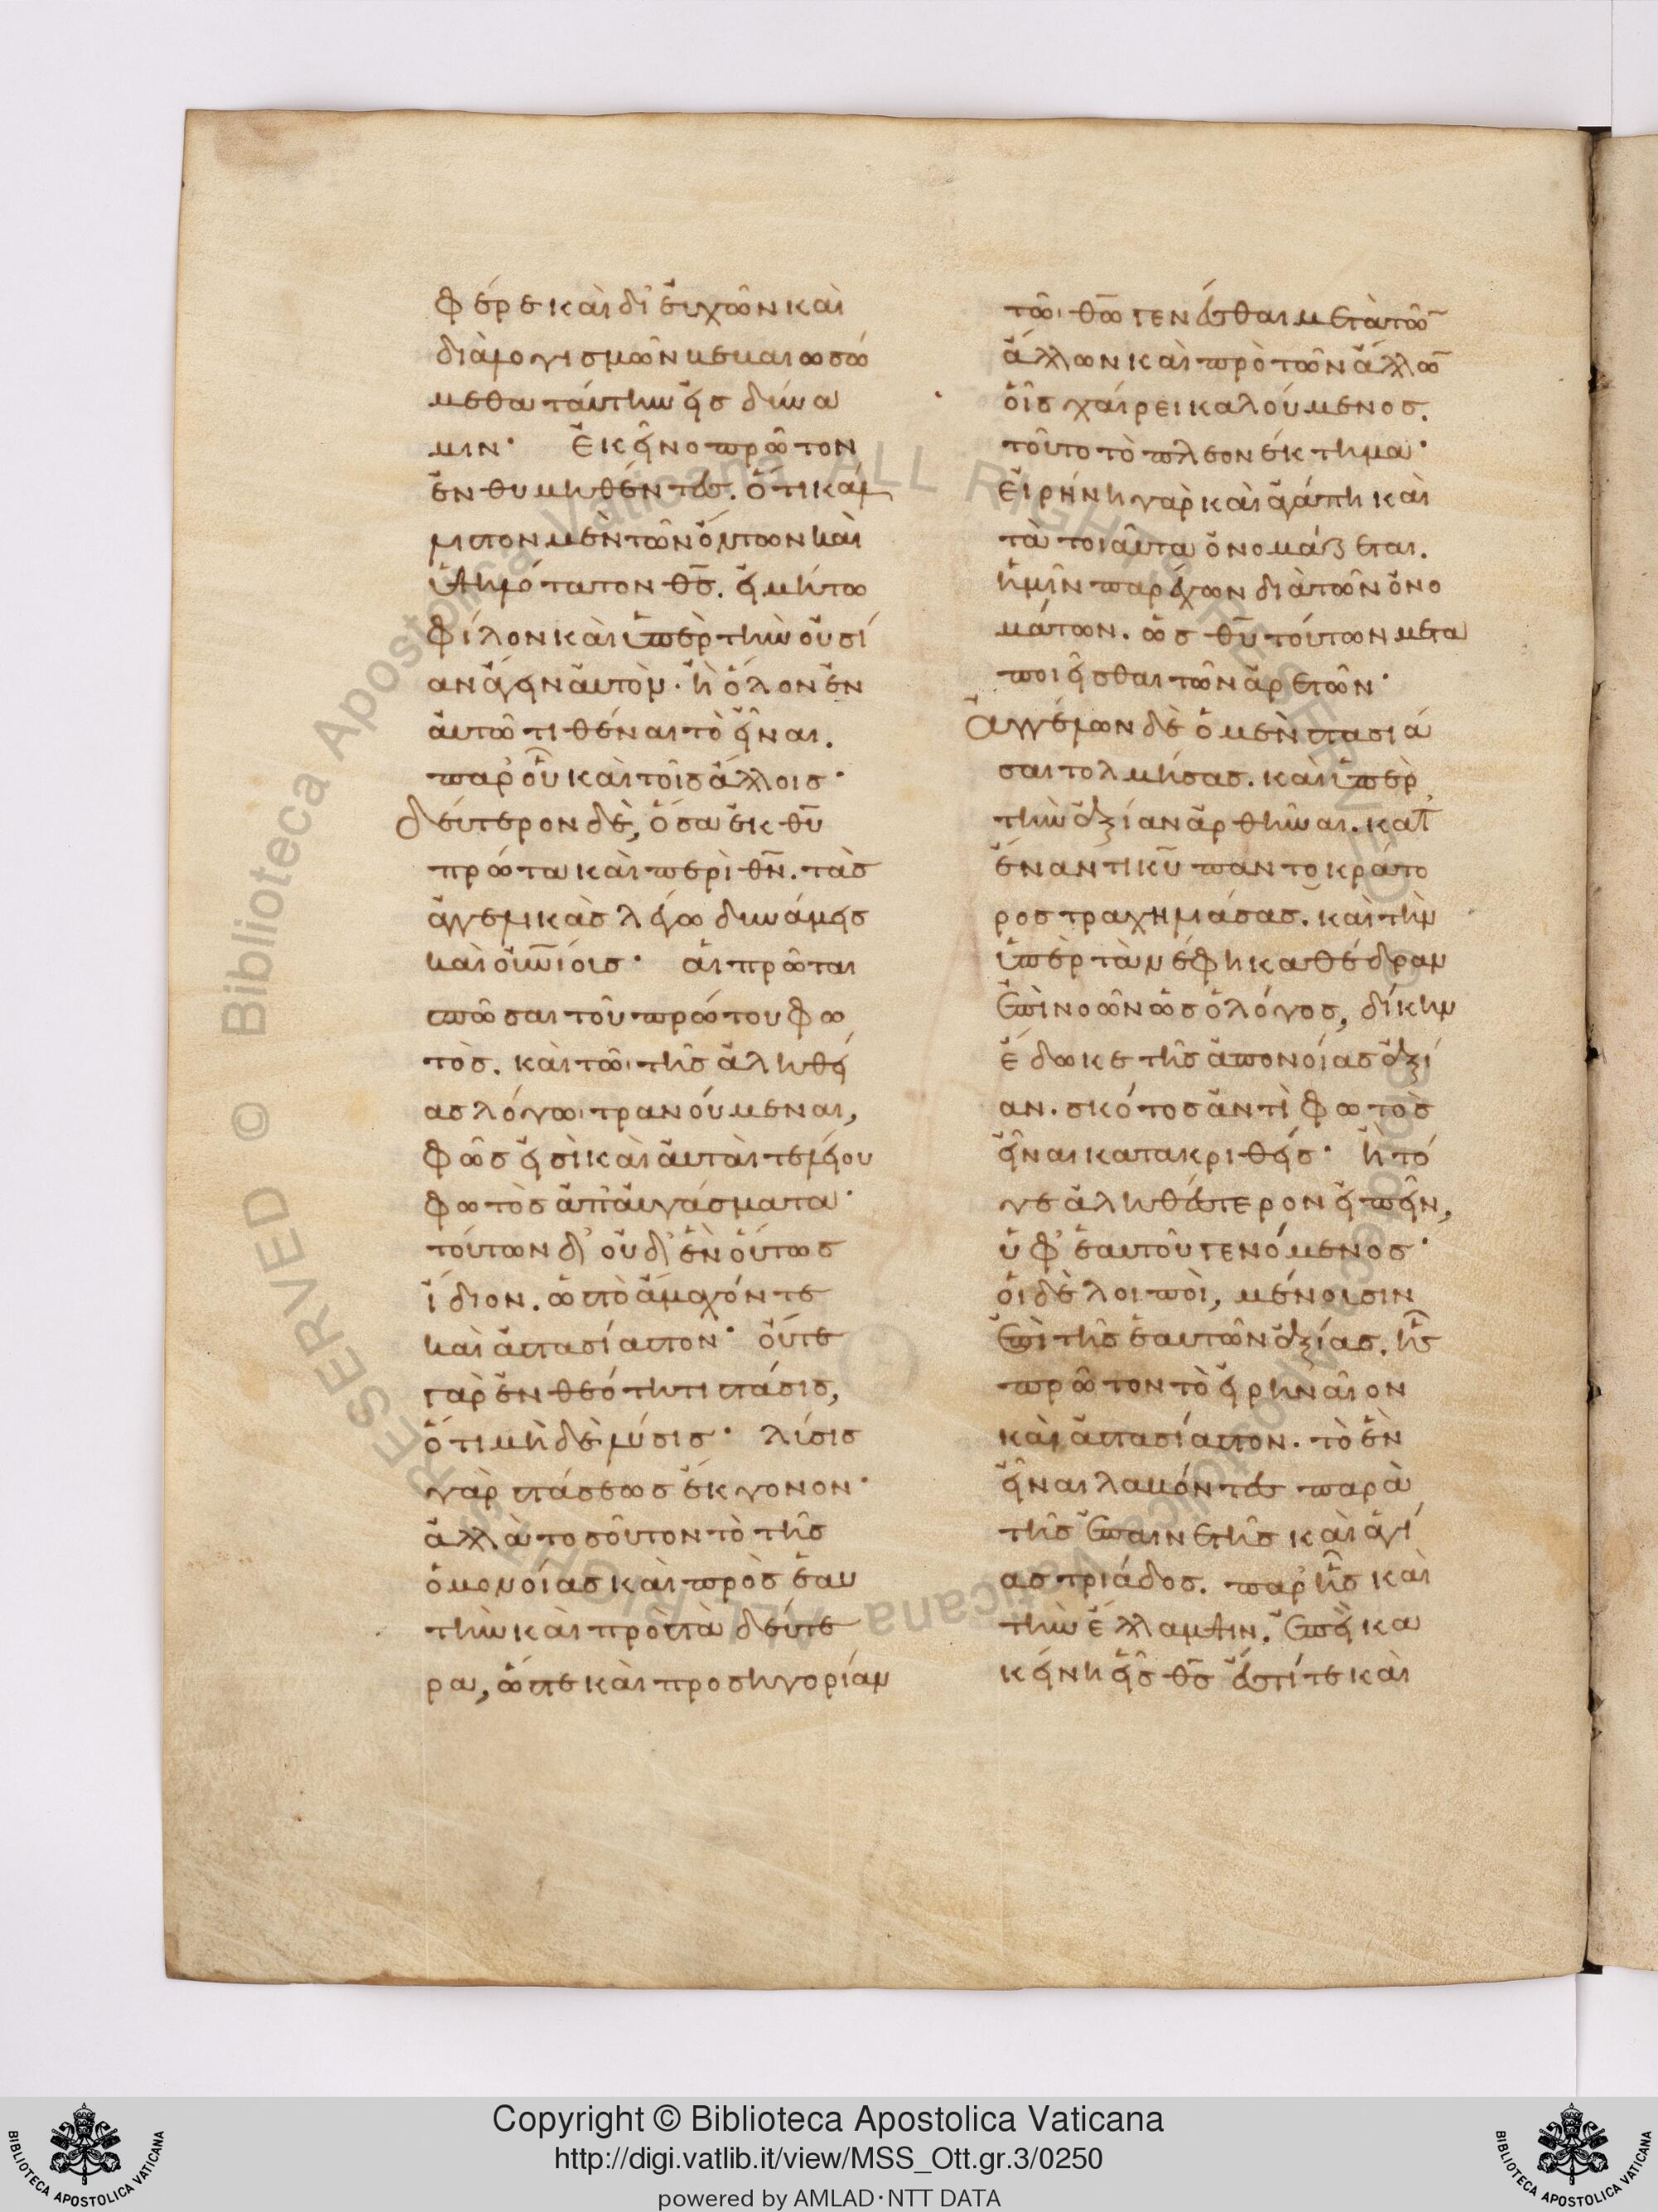 φέρε καὶ δι' εὐχῶν καὶ
διὰ λογισμῶν βεβαιωσώ
μεθα ταύτην εἰς δύνα
μιν· Ἐκεῖνο πρῶτον
ἐνθυμηθέντες. ὅτι κάλ
λιστον μὲν τῶν ὄντων καὶ
ὑψηλότατον θς. εἰ μή τω
φίλον καὶ ὑπὲρ τὴν οὐσί
αν ἄγειν αὐτὸν· ἢ ὅλον ἐν
αὐτῶ τιθέναι τὸ εἶναι.
παρ' οὗ καὶ τοῖς ἄλλοις·
δεύτερον δὲ, ὅσα ἐκ θυ
πρώτα καὶ περὶ θν. τὰς
ἀγγελικὰς λέγω δυνάμεις
καὶ οὐνίοις· αἱ πρῶται
σπῶσαι τοῦ πρώτου φω
τὸς. καὶ τῶι τῆς ἀληθεί
ας λόγωι τρανούμεναι,
φῶς εἰσὶ καὶ αὐταὶ τελείου
φωτὸς ἀπαυγάσματα·
τούτων δ' οὐδ' ἓν οὕτως
ἴδιον. ὡς τὸ ἄμαχόν τε
καὶ ἀστασίαστον· οὔτε
γὰρ ἐν θεότητι στάσις,
ὅτι μὴ δὲ λύσις· λύσις
γὰρ στάσεως ἔκγονον·
ἀλλὰ τοσοῦτον τὸ τῆς
ὁμονοίας καὶ πρὸς ἑαυ
τὴν καὶ πρὸς τὰ δεύτε
ρα, ὥστε καὶ προσηγορίαν
τῶι θῶ γενέσθαι μετὰ τῶ
ἄλλων καὶ πρὸ τῶν ἄλλω
οἷς χαίρει καλούμενος.
τοῦτο τὸ πλεονέκτημα·
Εἰρήνη γὰρ καὶ ἀγάπη καὶ
τὰ τοιαῦτα ὀνομάζεται.
ἡμῖν παρέχων διὰ τῶν ὀνο
μάτων. ὡς θυ τούτων μετα
ποιεῖσθαι τῶν ἀρετῶν·
Ἀγγέλων δὲ ὁ μὲν στασιά
σαι τολμήσας. καὶ ὑπὲρ
τὴν ἀξίαν ἀρθῆναι. κατ'
ἐναντι κυ παντοκράτο
ρος τραχηλιάσας. καὶ τὴν
ὑπὲρ τὰ νέφη καθέδραν
ἐπινοῶν ὡς ὁ λόγος, δίκην
ἔδωκε τῆς ἀπονοίας ἀξί
αν. σκότος ἀντὶ φωτὸς
εἶναι κατακριθείς· ἢ τό
γε ἀληθέστερον εἰπεῖν,
ὑφ' ἑαυτοῦ γενόμενος·
οἱ δὲ λοιποὶ, μένουσιν
ἐπὶ τῆς ἑαυτῶν ἀξίας. ἧς
πρῶτον τὸ εἰρηναῖον
καὶ ἀστασίαστον. τὸ ἓν
εἶναι λαβόντες παρὰ
τῆς ἐπαινετῆς καὶ ἁγί
ας τριάδος. παρ' ἧς καὶ
τὴν ἔλλαμψιν. ἐπεὶ κα
κείνη εἷς θς ἐστί τε καὶ
Copyright © Biblioteca Apostolica Vaticana
http://digi.vatlib.it/view/MSS_Ott.gr.3/0250
powered by AMLAD·NTT DATA